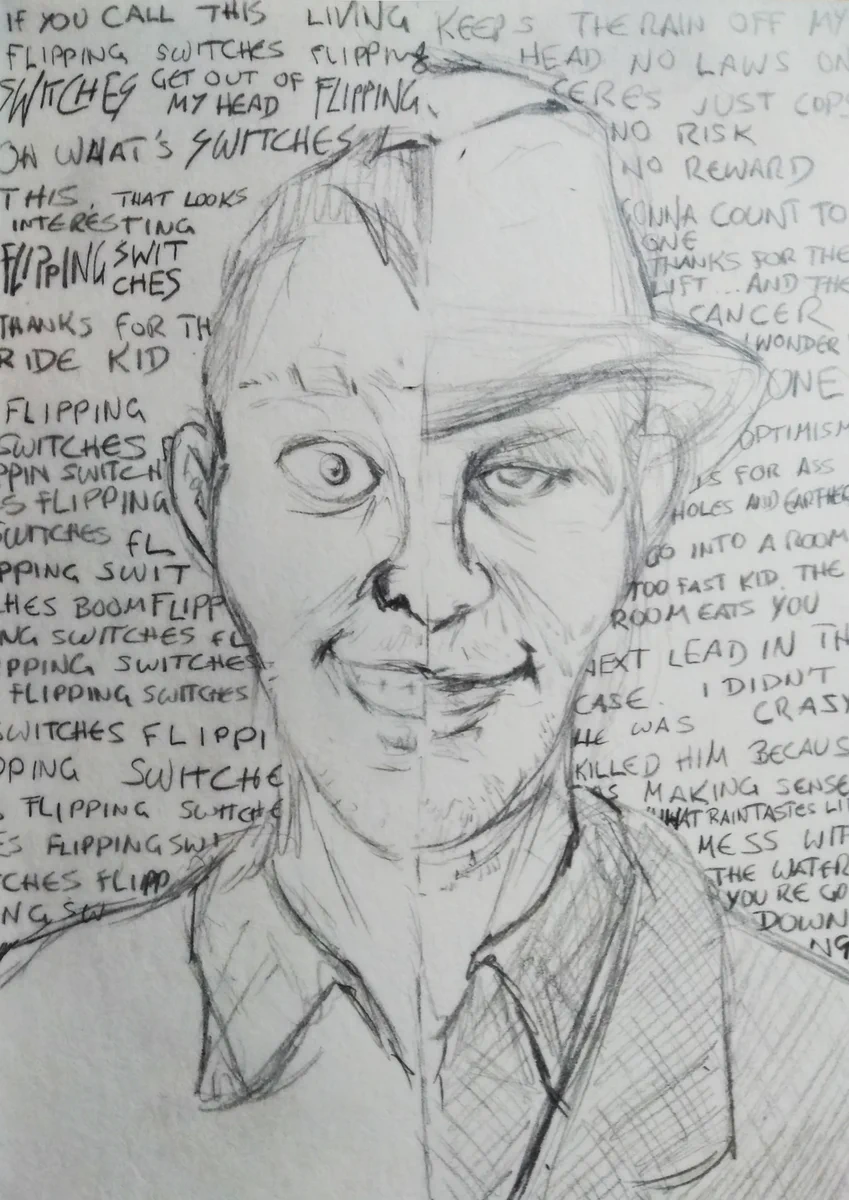 IF YOU CALL THIS LIVING
FLIPPING SWITCHES FLIPPING
SWITCHES GET OUT OF
MY HEAD FLIPPING
OH WHAT'S SWITCHES
THIS. THAT LOOKS
INTERESTING
FLIPPING SWIT
CHES
THANKS FOR TH
RIDE KID
FLIPPING
SWITCHES F
PPIN SWITCH
S FLIPPING
SWITCHES FL
PPING SWIT
CHES BOOM FLIPP
NG SWITCHES FL
PPING SWITCHES
FLIPPING SWITCHES
SWITCHES FLIPPI
PPING SWITCHE
FLIPPING SWITCHE
ES FLIPPING SWI
TCHES FLIPP
NG SW
KEEPS THE RAIN OFF MY
HEAD NO LAWS ON
CERES JUST COPS
NO RISK
NO REWARD
GONNA COUNT TO
ONE
THANKS FOR THE
LIFT...AND THE
CANCER
I WONDER
ONE
OPTIMISM
IS FOR ASS
HOLES AND EARTHER
GO INTO A ROOM
TOO FAST KID. THE
ROOM EATS YOU
NEXT LEAD IN TH
CASE. I DIDN'T
HE WAS CRAZY
KILLED HIM BECAUS
AS MAKING SENSE
WHAT RAIN TASTES LI
MESS WIT
THE WATER
YOU'RE GO
DOWN
N9